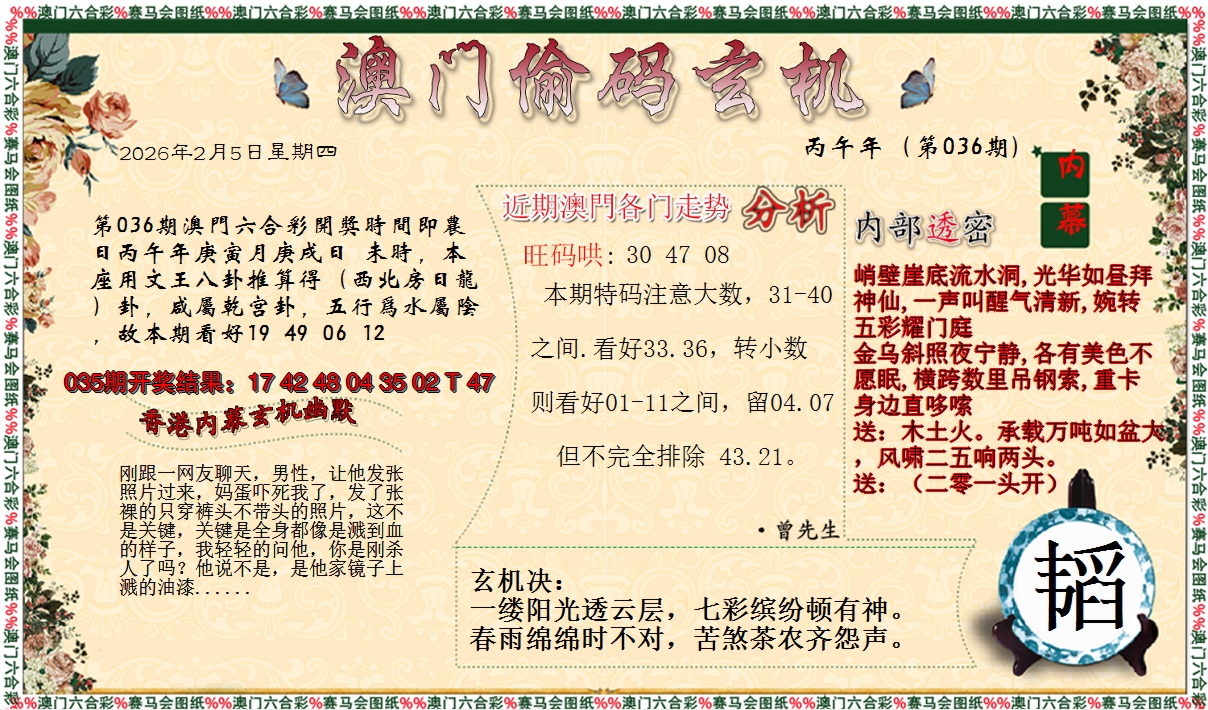 %%澳门六合彩%赛马会图纸%%澳门六合彩%赛马会图纸%%澳门六合彩%赛马会图纸%%澳门六合彩%赛马会图纸%%澳门六合彩%赛马会图纸%%澳门六合彩%赛马会图纸%%
澳门偷码玄机
2026年2月5日星期四
丙午年（第036期）
内
幕
第036期澳門六合彩開獎時間即農
日丙午年庚寅月庚戌日 未時，本
座用文王八卦推算得（西北房日龍
）卦，咸屬乾宫卦，五行爲水屬陰
，故本期看好19 49 06 12
035期开奖结果：17 42 48 04 35 02 T 47
香港内幕玄机幽默
刚跟一网友聊天，男性，让他发张
照片过来，妈蛋吓死我了，发了张
裸的只穿裤头不带头的照片，这不
是关键，关键是全身都像是溅到血
的样子，我轻轻的问他，你是刚杀
人了吗？他说不是，是他家镜子上
溅的油漆......
近期澳門各门走势 分析
旺码哄: 30 47 08
本期特码注意大数，31-40
之间.看好33.36，转小数
则看好01-11之间，留04.07
但不完全排除 43.21。
·曾先生
内部透密
峭壁崖底流水洞,光华如昼拜
神仙,一声叫醒气清新,婉转
五彩耀门庭
金乌斜照夜宁静,各有美色不
愿眠,横跨数里吊钢索,重卡
身边直哆嗦
送：木土火。承载万吨如盆大
，风啸二五响两头。
送：（二零一头开）
玄机决：
一缕阳光透云层，七彩缤纷顿有神。
春雨绵绵时不对，苦煞茶农齐怨声。
韬
%%澳门六合彩%赛马会图纸%%澳门六合彩%赛马会图纸%%澳门六合彩%赛马会图纸%%澳门六合彩%赛马会图纸%%澳门六合彩%赛马会图纸%%澳门六合彩%赛马会图纸%%